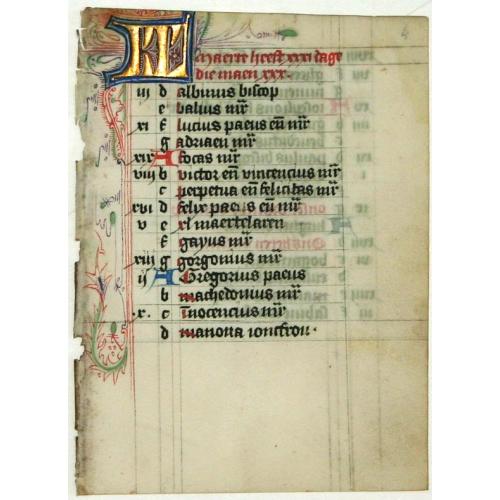 KL Maerte heeft xxxi dage
die maen xxx.
iii d albinus biscop
e balius mr̄
xi f lucius paeus eñ mr̄
g adriaen mr̄
xix A focas mr̄
viij b victor eñ vincencius mr̄
c perpetua eñ felicitas mr̄
xvi d felix paeus eñ mr̄
v e xl maertelaren
f gayus mr̄
xiii g gorgonius mr̄
ij A Gregorius paeus
b machedonius mr̄
x. c īnocencius mr̄
d ioncfrou.